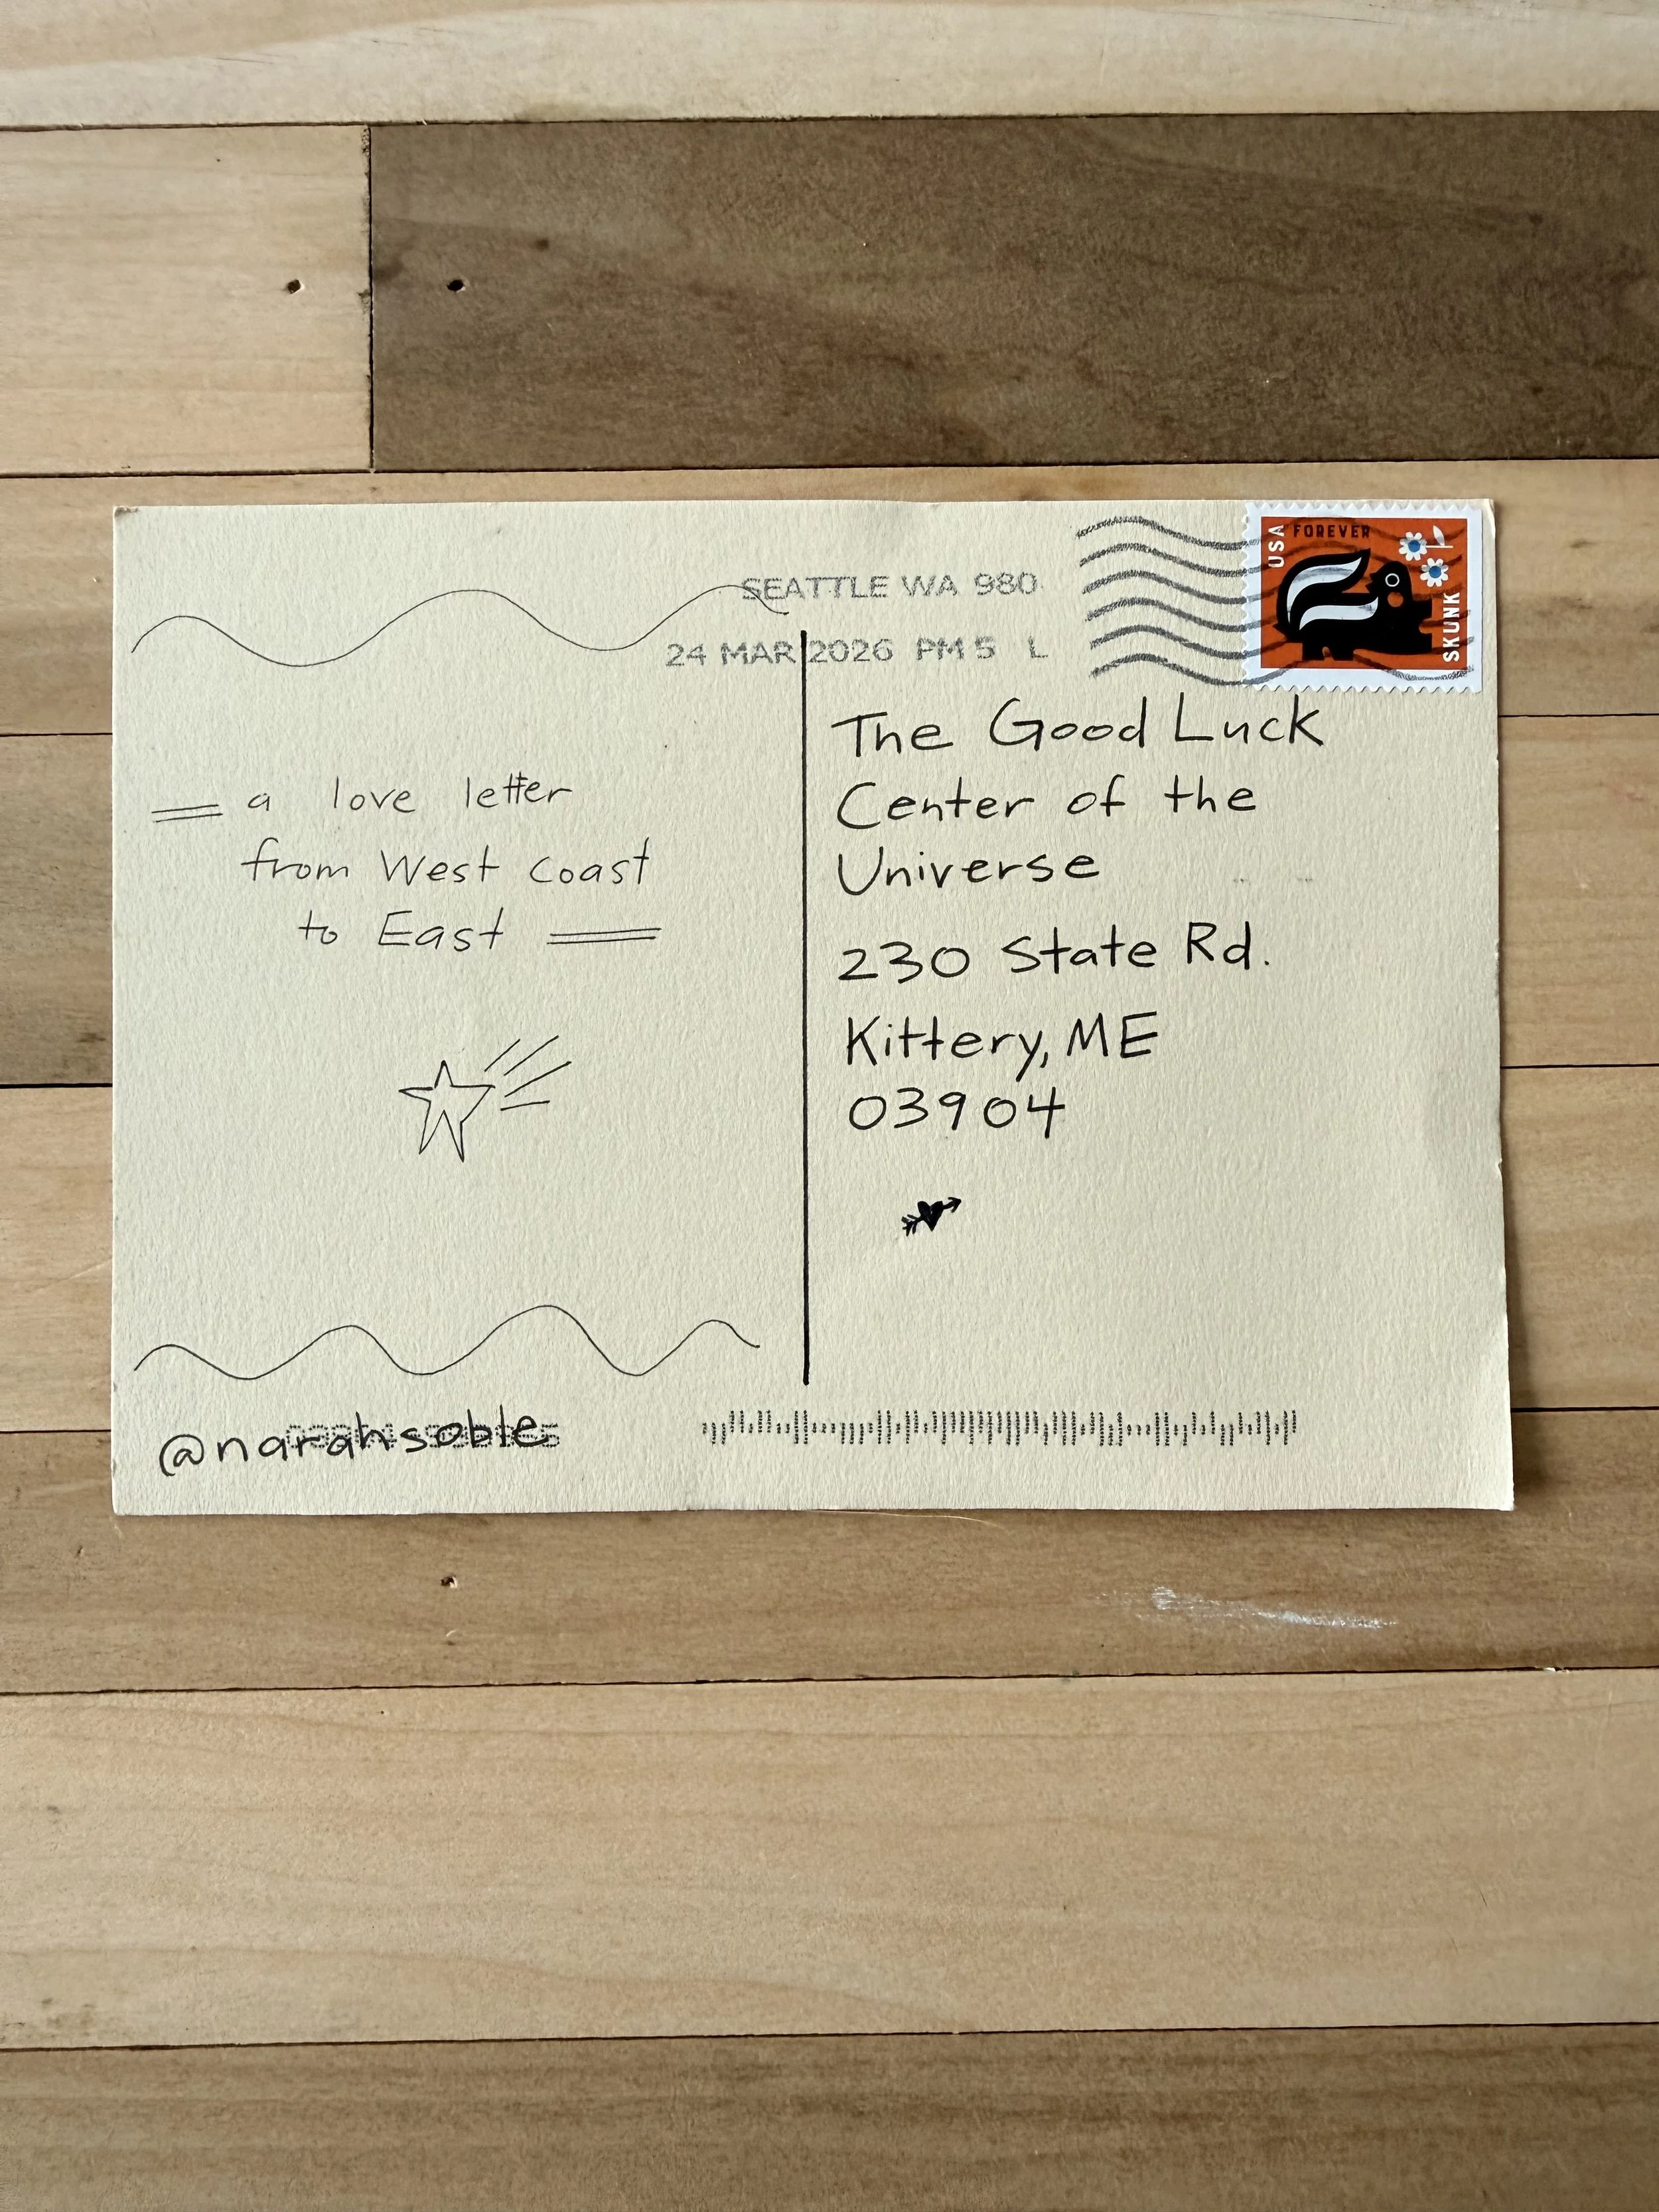 SEATTLE WA 980
24 MAR 2026 PM 5 L
USA
FOREVER
SKUNK
a love letter
from West Coast
to East
The Good Luck
Center of the
Universe
230 State Rd.
Kittery, ME
03904
@narahsoble